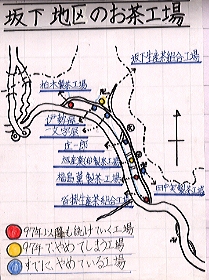 坂下地区のお茶工場
坂下生産茶組合工場
柏木製茶工場
伊勢原
文字原
虎一郎
福島葉製茶工場
田中製茶工場
石標生産茶組合工場
97年以降も続けていく工場
97年でやめてしまう工場
すでに、やめている工場